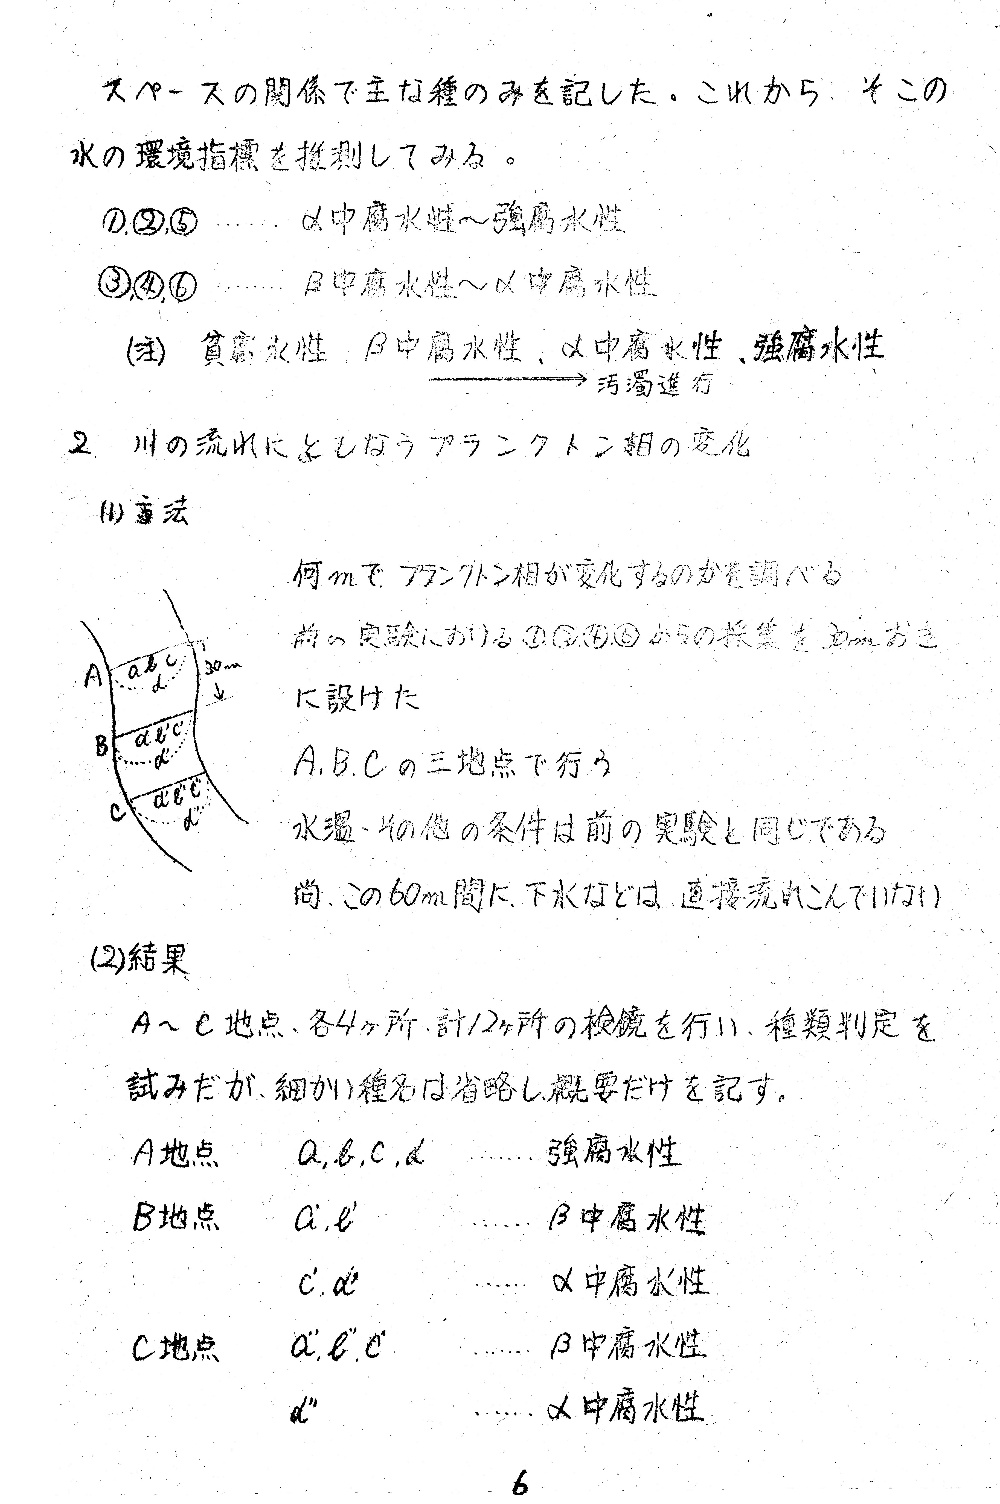 スペースの関係で主な種のみを記した。これから、そこの
水の環境指標を推測してみる。
①,②,⑤ …… α中腐水性～強腐水性
③,④,⑥ …… β中腐水性～α中腐水性
(注) 貧腐水性、β中腐水性、α中腐水性、強腐水性
→汚濁進行
2. 川の流れにともなうプランクトン相の変化
(1)方法
何mでプランクトン相が変化するのかを調べる
前の実験における①③④⑥からの採集を30mおき
に設けた
A.B.Cの三地点で行う
水温・その他の条件は前の実験と同じである
尚、この60m間に、下水などは、直接流れこんでいない
A a b c d 30m
B a' b' c' d'
C a" b" c" d"
(2)結果
A～C地点、各4ヶ所、計12ヶ所の検鏡を行い、種類判定を
試みだが、細かい種名は省略し、概要だけを記す。
A地点 a,b,c,d …… 強腐水性
B地点 a',b' …… β中腐水性
c',d' …… α中腐水性
C地点 a",b",c" …… β中腐水性
d" …… α中腐水性
6